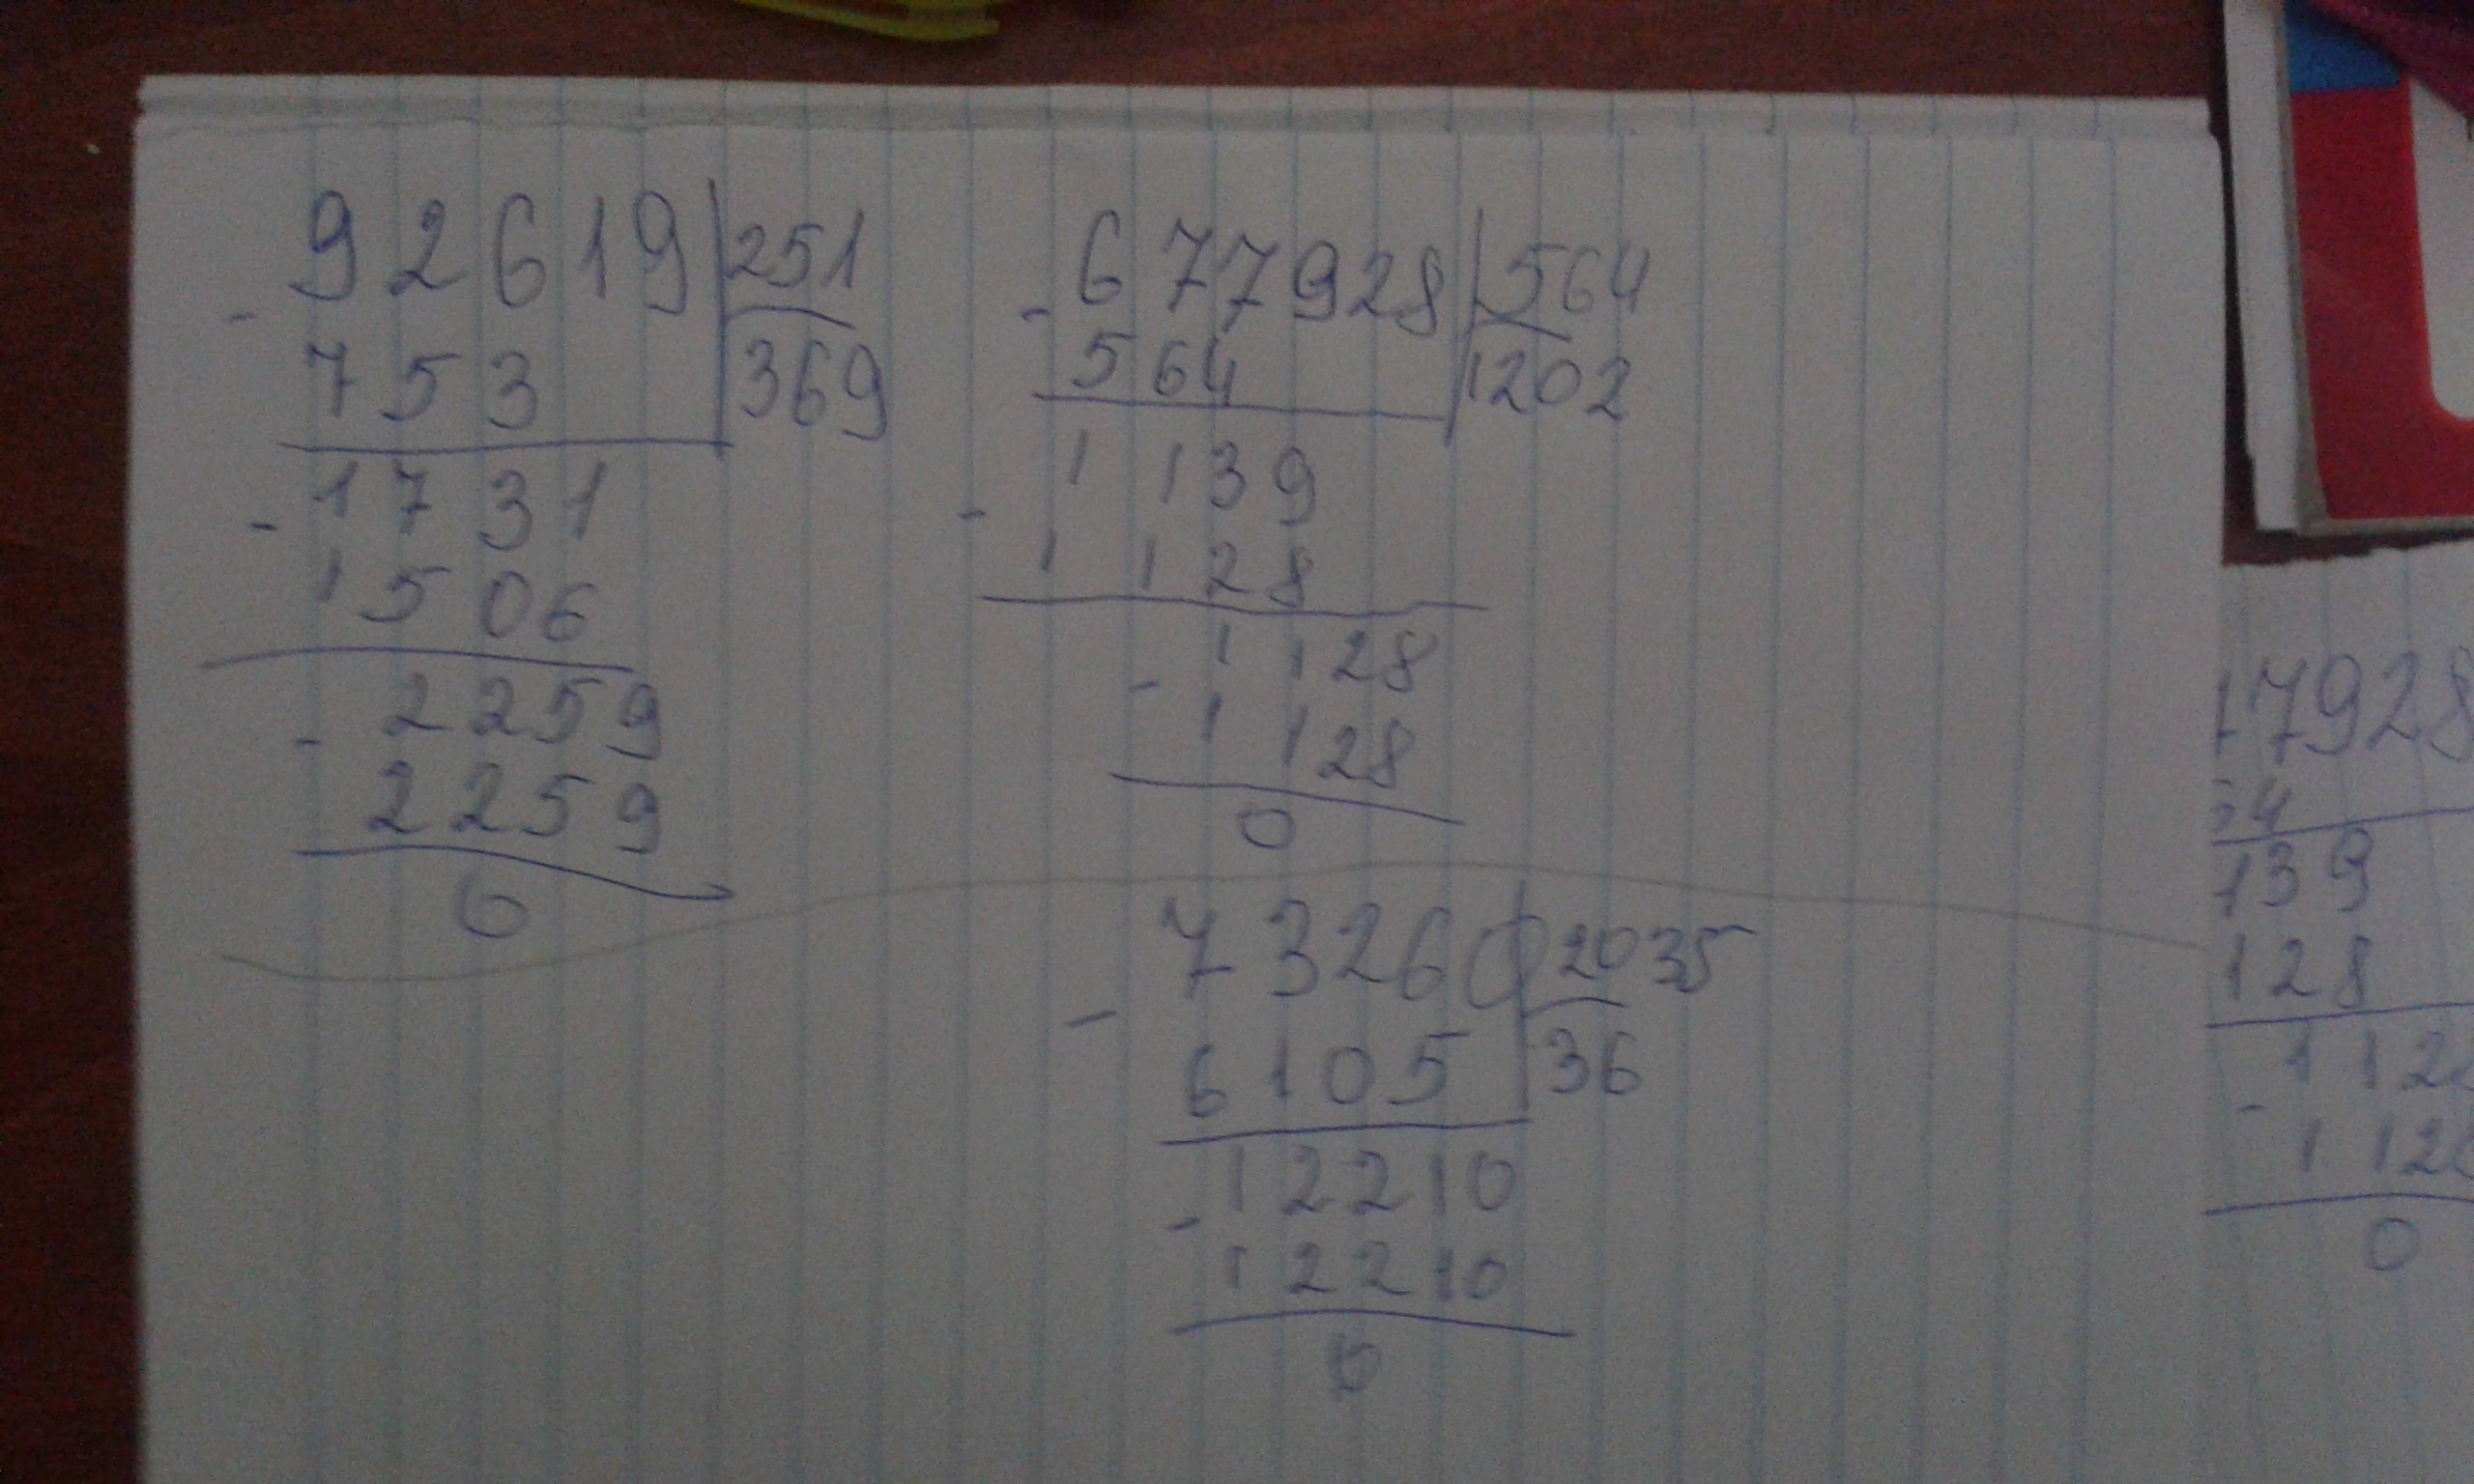 92619 251
- 753 369
1731
- 1506
2259
- 2259
0
677928 564
- 564 1202
1139
- 1128
1128
- 1128
0
73260 2035
- 6105 36
12210
- 12210
0
7928
4
139
128
112
- 112
0